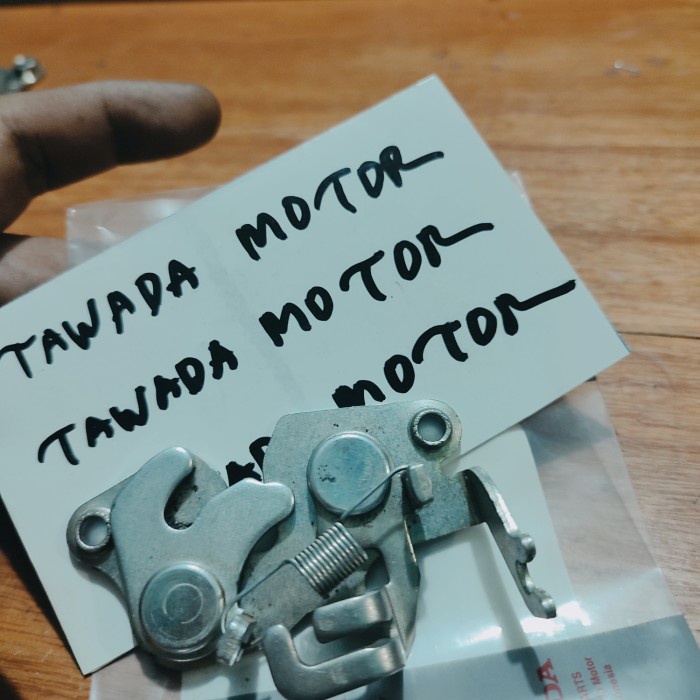 TAWADA MOTOR
TAWADA MOTOR
MOTOR
Motor